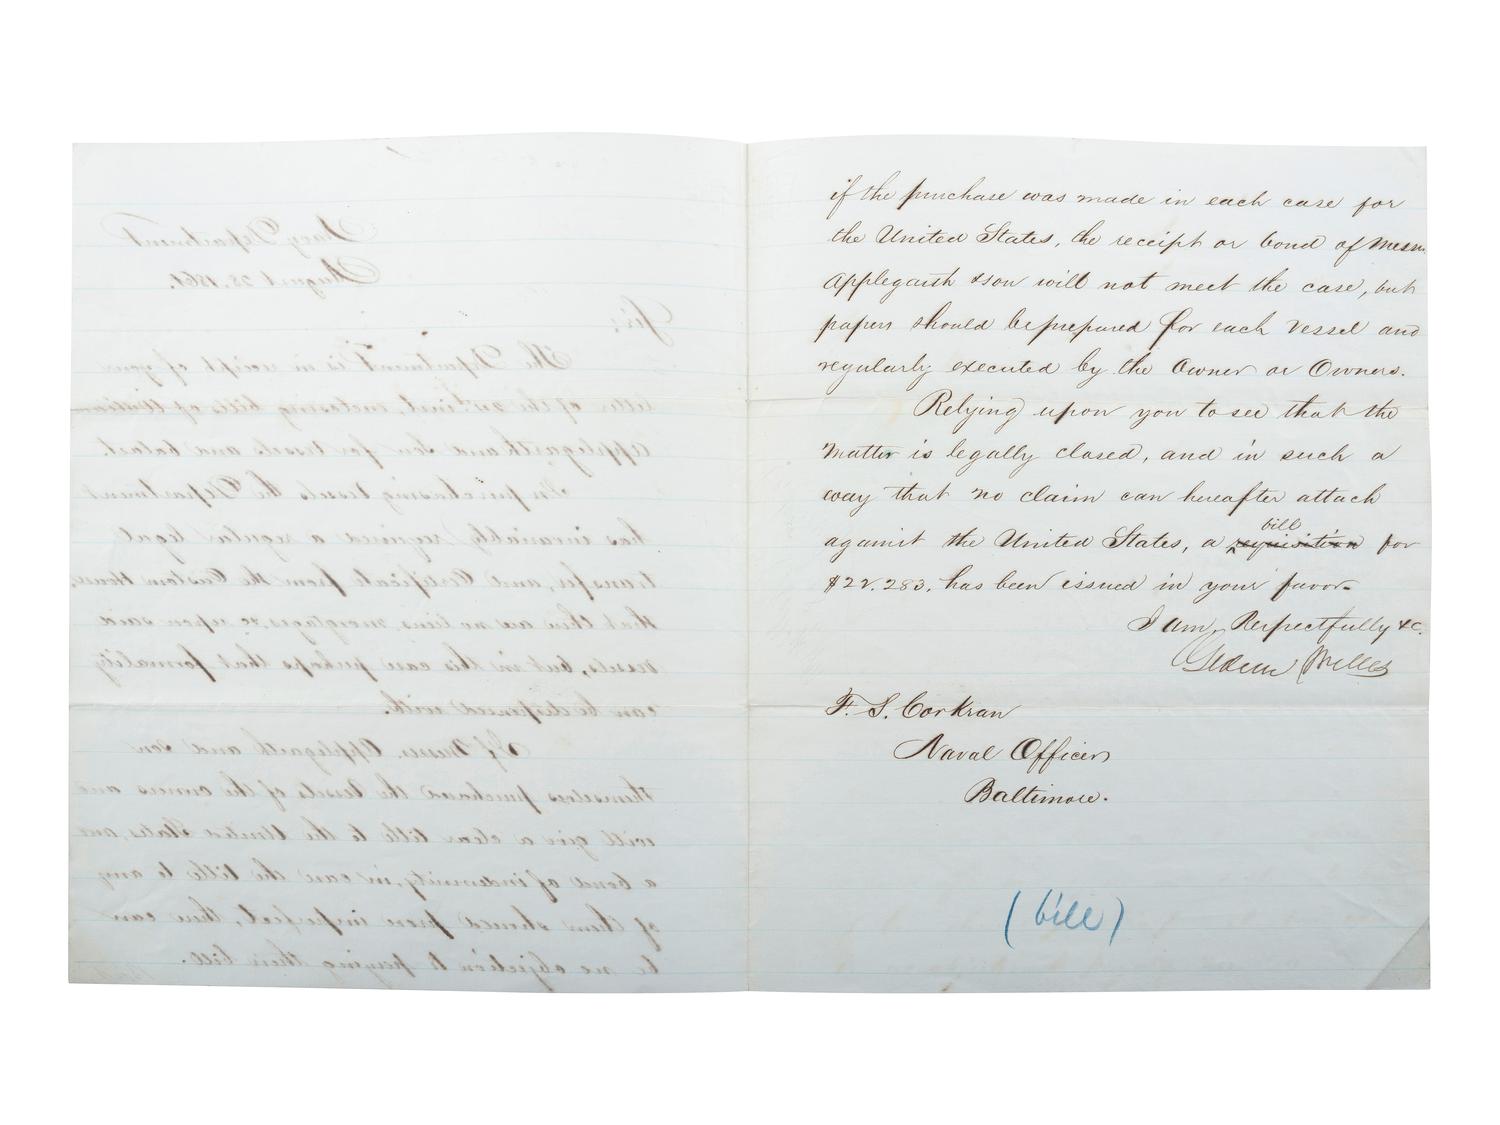 Navy Department
August 28. 1861.
Sir;
The Department is in receipt of your
letter of the inst, enclosing bills of
Applegarth and Son for vessels and balast.
In purchasing vessels the Department
has invariably required a regular legal
transfer, and Certificate from the Custom House,
that there are no liens, mortgages, &c upon said
vessels, but in this case perhaps that formality
can be dispensed with.
If Messrs. Applegarth and Son
themselves purchased the vessels of the owners and
will give a clear title to the United States, and
a bond of indemnity, in case the title to any
of them should prove imperfect, there can
be no objection to paying their bill.
if the purchase was made in each case for
the United States, the receipt or bond of Messrs.
Applegarth & son will not meet the case, but
papers should be prepared for each vessel and
regularly executed by the Owner or Owners.
Relying upon you to see that the
Matter is legally closed, and in such a
way that no claim can hereafter attach
bill
against the United States, a requisition for
$22.283. has been issued in your favor.
I am, Respectfully &c.
Gideon Welles
F. S. Corkran
Naval Officer
Baltimore.
(bill)